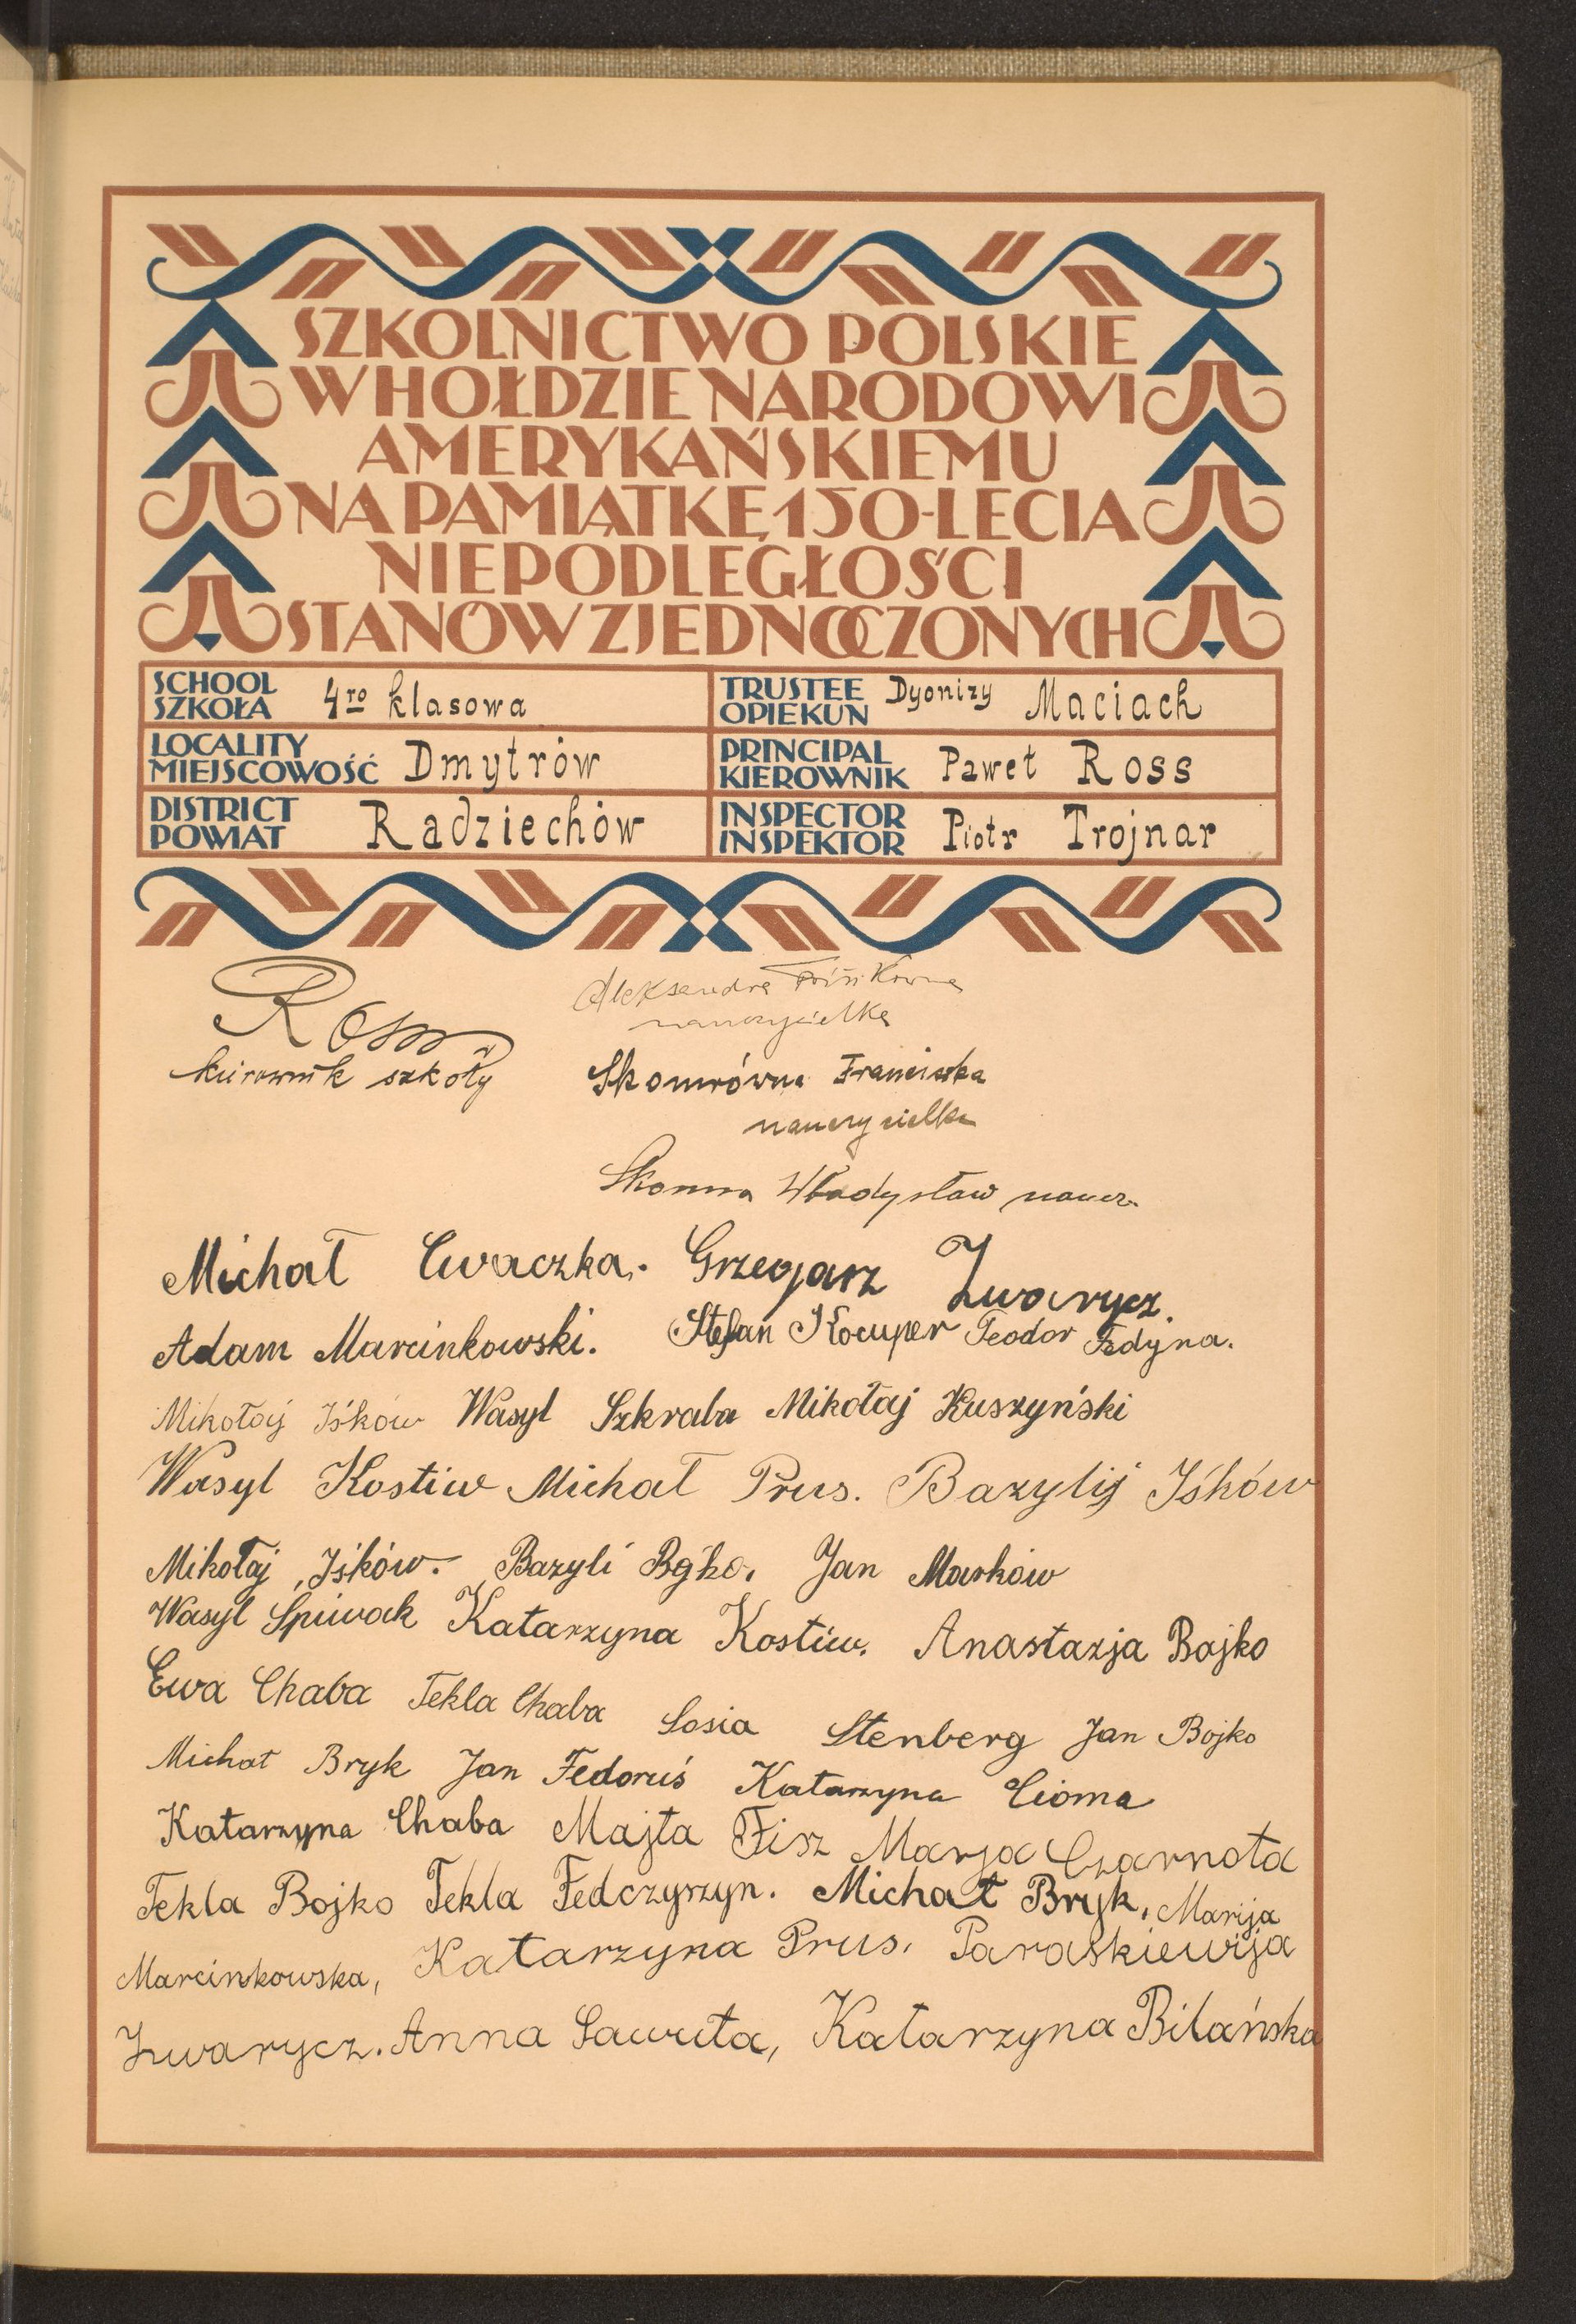 SZKOLNICTWO POLSKIE
W HOŁDZIE NARODOWI
AMERYKAŃSKIEMU
NA PAMIĄTKĘ 150-LECIA
NIEPODLEGŁOŚCI
STANÓW ZJEDNOCZONYCH
SCHOOL
SZKOŁA 4ro klasowa
TRUSTEE
OPIEKUN Dyonizy Maciach
LOCALITY
MIEJSCOWOŚĆ Dmytrów
PRINCIPAL
KIEROWNIK Paweł Ross
DISTRICT
POWIAT Radziechów
INSPECTOR
INSPEKTOR Piotr Trojnar
Ross
kierownik szkoły
Aleksandra
nauczycielka
Skomrówna Franciszka
nauczycielka
Skomra Władysław naucz.
Michał Cwaczka. Grzegarz Zwarycz.
Adam Marcinkowski. Stefan Kocuper Teodor Fedyna.
Mikołaj Iśków Wasyl Szkraba Mikołaj Kuszyński
Wasyl Kostiw Michał Prus. Bazylij Iśków
Mikołaj Iśków. Bazyli Bojko. Jan Marków
Wasyl Spiwak Katarzyna Kostiw. Anastazja Bojko
Ewa Chaba Tekla Chaba Sosia Stenberg Jan Bojko
Michał Bryk Jan Fedoruś Katarzyna Cioma
Katarzyna Chaba Majta Fisz Marja Czarnota
Tekla Bojko Tekla Fedczyszyn. Michał Bryk, Marija
Marcinkowska, Katarzyna Prus. Paraskiewija
Zwarycz. Anna Sawuła, Katarzyna Bilańska